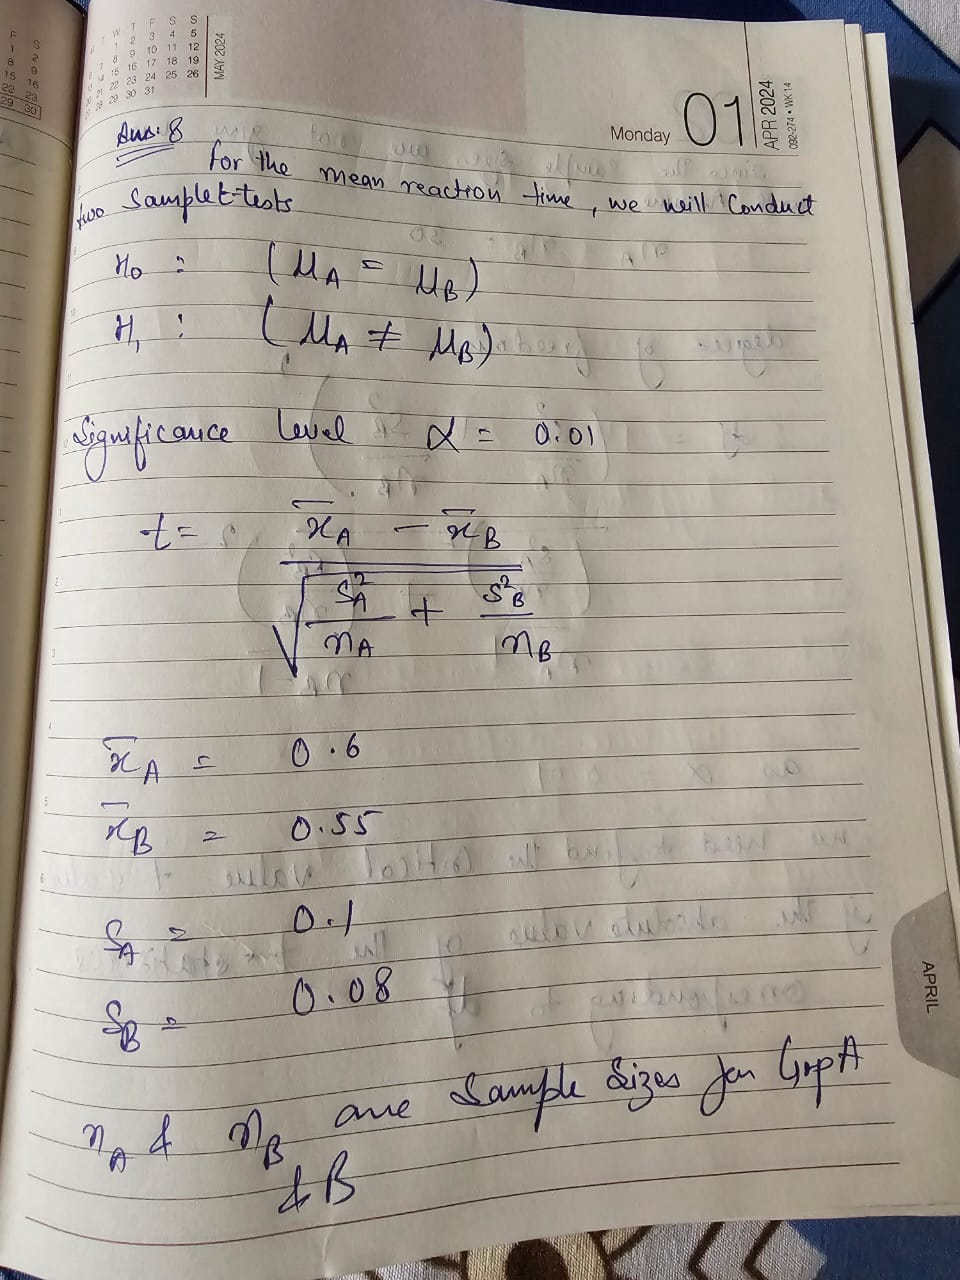 F S
1 2
8 9
15 16
22 23
29 30
W T F S S
1 2 3 4 5
8 9 10 11 12
15 16 17 18 19
22 23 24 25 26
29 30 31
MAY 2024
Monday 01
APR 2024
092-274 • WK 14
Ans: 8
for the mean reaction time, we will Conduct
two Sample t-tests
H₀ : (μA = μB)
H₁ : (μA ≠ μB)
Significance level α = 0.01
t = x̄A − x̄B
√ S²A/nA + S²B/nB
x̄A = 0.6
x̄B = 0.55
SA = 0.1
SB = 0.08
nA & nB are Sample Sizes for Grp A
& B
APRIL